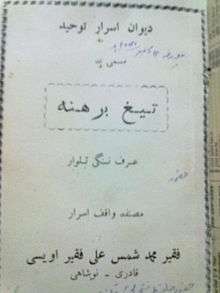 دیوان اسرار توحید
مسمی بہ
تیغ برهنه
عرف ننگی تلوار
مصنفہ واقف اسرار
فقیر محمد شمس علی فقیر اویسی
قادری - نوشاهی